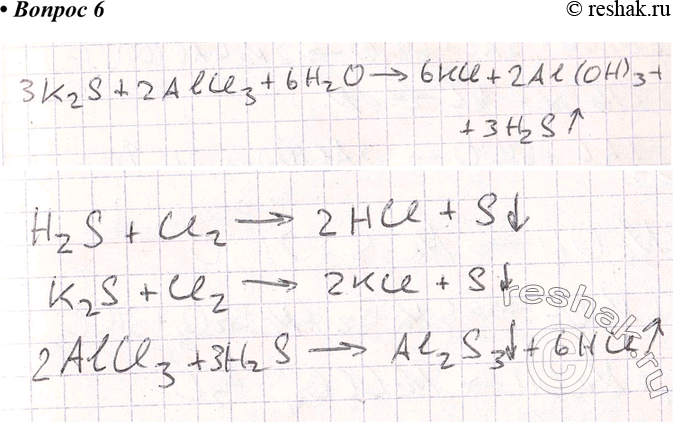 • Вопрос 6
© reshak.ru
3K₂S + 2AlCl₃ + 6H₂O → 6KCl + 2Al(OH)₃ +
+ 3H₂S ↑
H₂S + Cl₂ → 2HCl + S↓
K₂S + Cl₂ → 2KCl + S↓
2AlCl₃ + 3H₂S → Al₂S₃↓ + 6HCl↑
reshak.ru